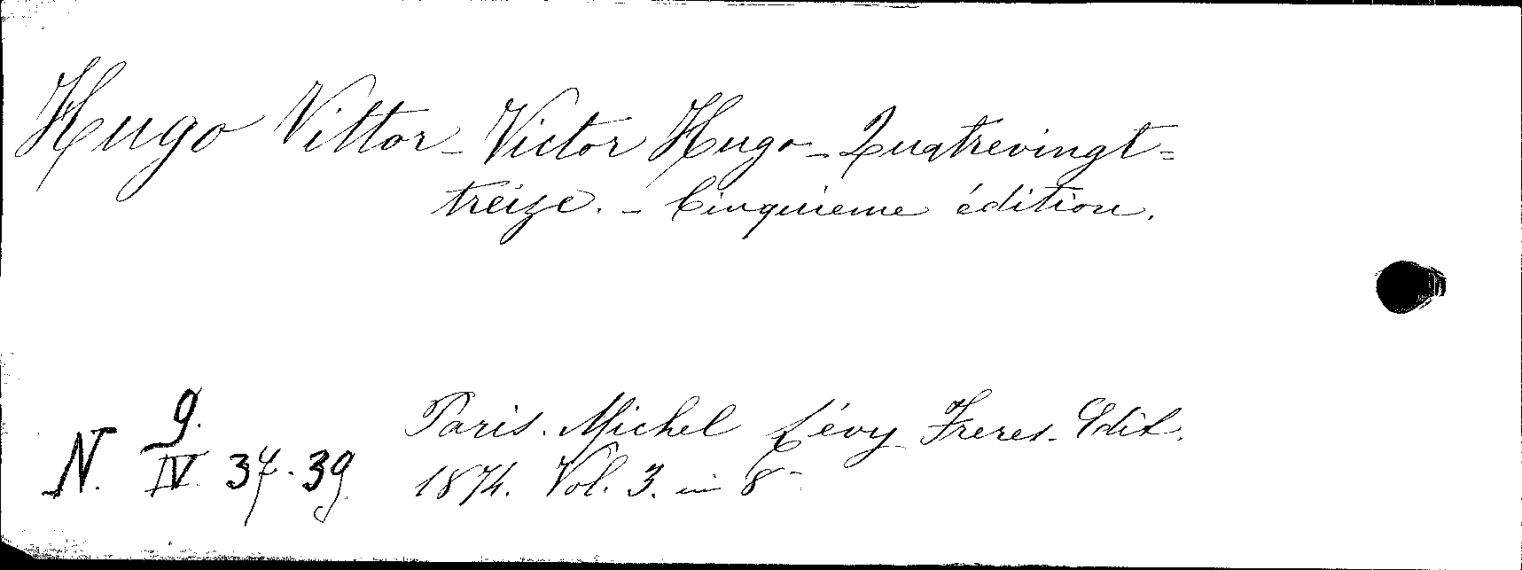 Hugo Vittor - Victor Hugo - Quatrevingt=
treize. - Cinquieme édition.
9.
N. IV. 37-39
Paris. Michel Lévy Freres. Edit.
1874. Vol. 3. in 8-